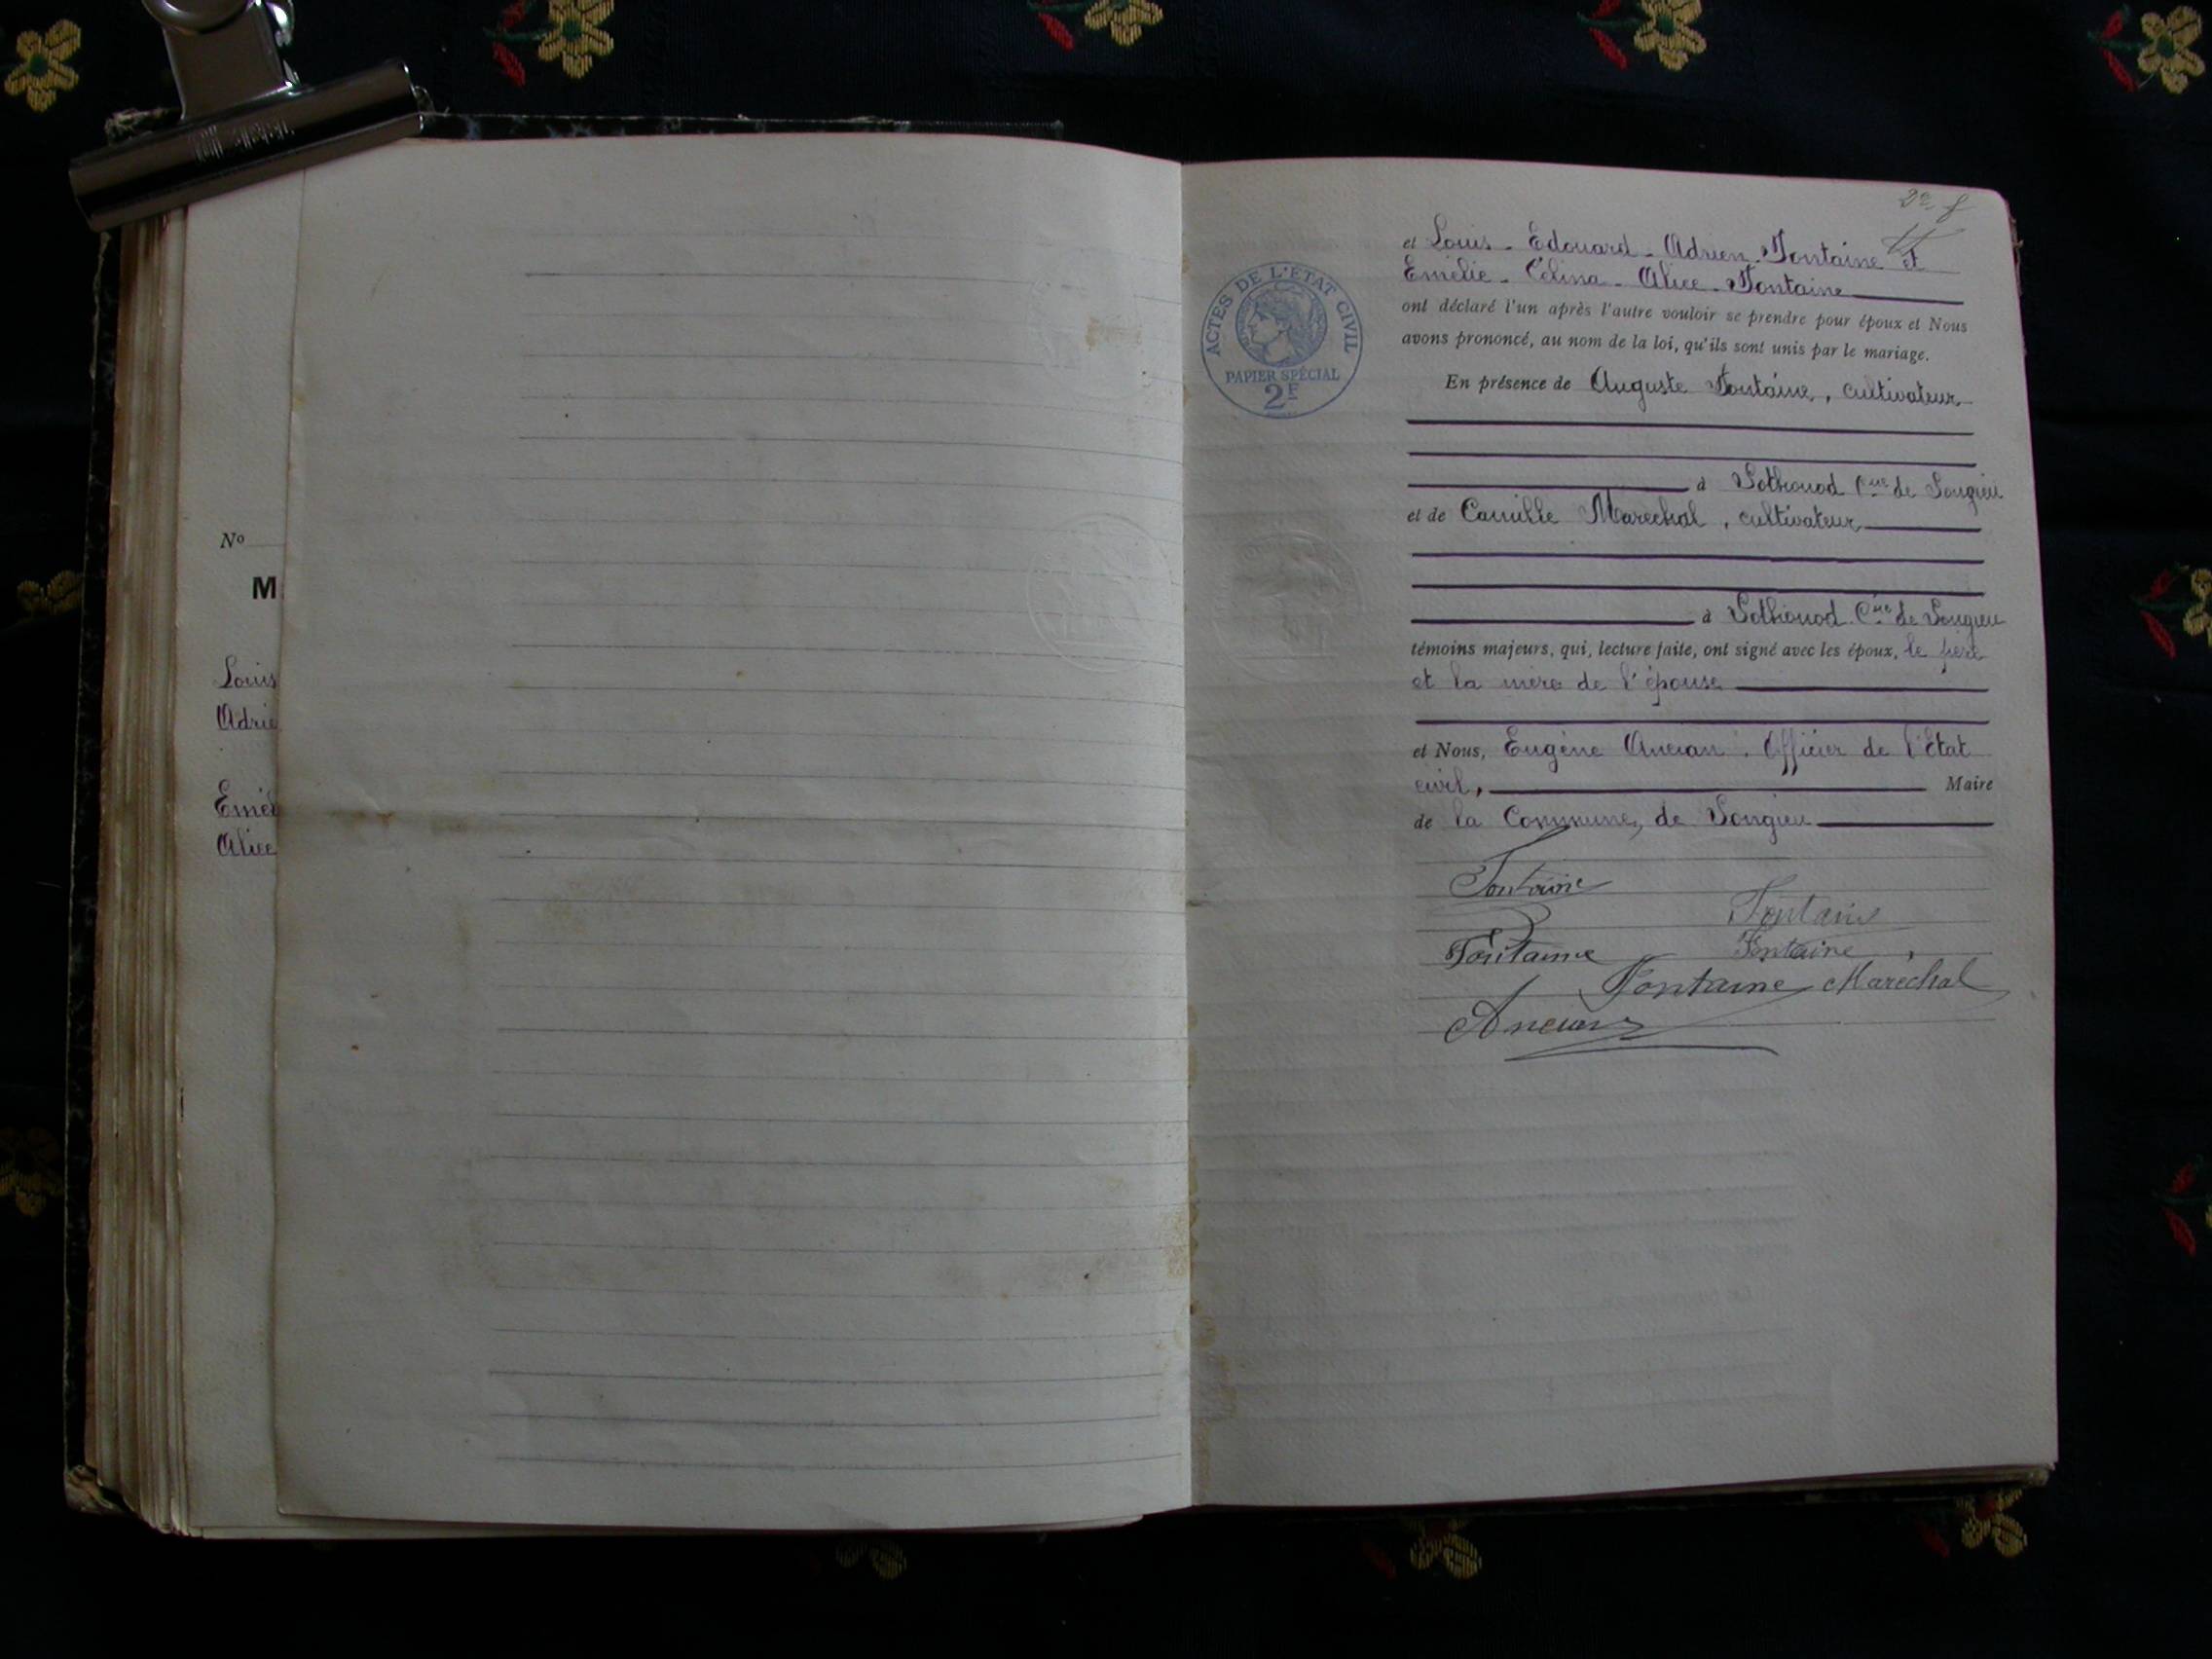 No
M
Louis
Adrie
Emél
Alice
ACTES DE L'ÉTAT CIVIL
PAPIER SPÉCIAL
2F
et Louis - Edouard - Adrien Fontaine et
Emélie - Célina - Alice - Fontaine
ont déclaré l'un après l'autre vouloir se prendre pour époux et Nous
avons prononcé, au nom de la loi, qu'ils sont unis par le mariage.
En présence de Auguste Fontaine, cultivateur
à Sothonod Cne de Songieu
et de Camille Maréchal, cultivateur
à Sothonod Cne de Songieu
témoins majeurs, qui, lecture faite, ont signé avec les époux, le père
et la mère de l'épouse
et Nous, Eugène Ancian. Officier de l'Etat
civil, Maire
de la Commune, de Songieu
Fontaine
Fontaine
Fontaine Fontaine
Fontaine Maréchal
Ancian